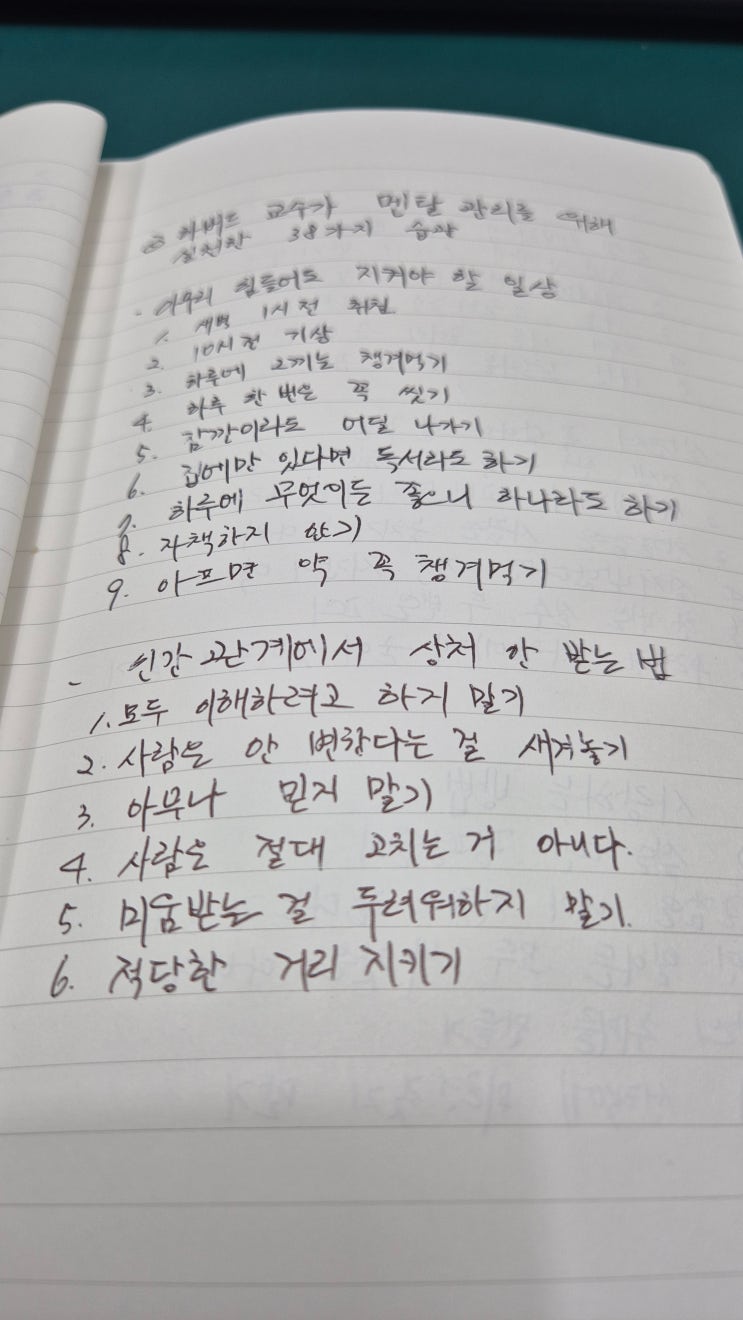 ◎ 하버드 교수가 멘탈 관리를 위해
실천한 38가지 습관
- 아무리 힘들어도 지켜야 할 일상
1. 새벽 1시 전 취침
2. 10시 전 기상
3. 하루에 2끼는 챙겨먹기
4. 하루 한 번은 꼭 씻기
5. 잠깐이라도 어딜 나가기
6. 집에만 있다면 독서라도 하기
7. 하루에 무엇이든 좋으니 하나라도 하기
8. 자책하지 않기
9. 아프면 약 꼭 챙겨먹기
- 인간관계에서 상처 안 받는 법
1. 모두 이해하려고 하지 말기
2. 사람은 안 변한다는 걸 새겨놓기
3. 아무나 믿지 말기
4. 사람은 절대 고치는 거 아니다.
5. 미움받는 걸 두려워하지 말기.
6. 적당한 거리 지키기